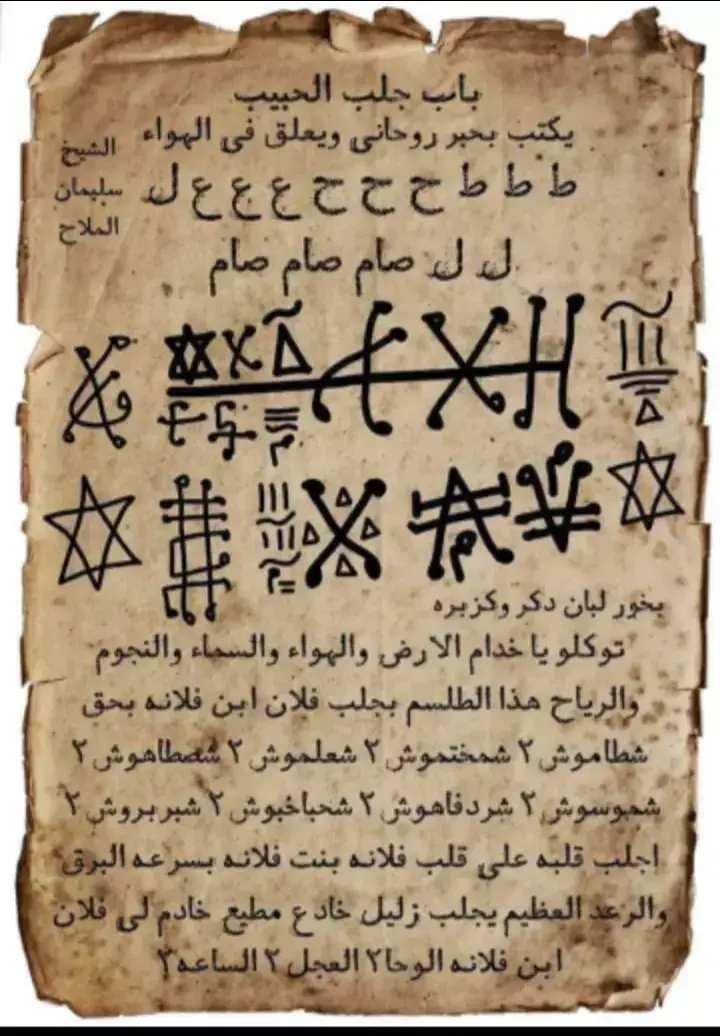 باب جلب الحبيب
يكتب بحبر روحانى ويعلق فى الهواء
الشيخ
سليمان
الملاح
ط ط ط ح ح ح ع ع ع ل
ل ل صام صام صام
بخور لبان دكر وكزبره
توكلو يا خدام الارض والهواء والسماء والنجوم
والرياح هذا الطلسم بجلب فلان ابن فلانه بحق
شطاموش ٢ شمختموش ٢ شعلموش ٢ شصطاهوش ٢
شموسوش ٢ شردفاهوش ٢ شحباخبوش ٢ شبربروش ٢
اجلب قلبه على قلب فلانه بنت فلانه بسرعه البرق
والرعد العظيم يجلب زليل خادع مطيع خادم لى فلان
ابن فلانه الوحا٢ العجل ٢ الساعه٢